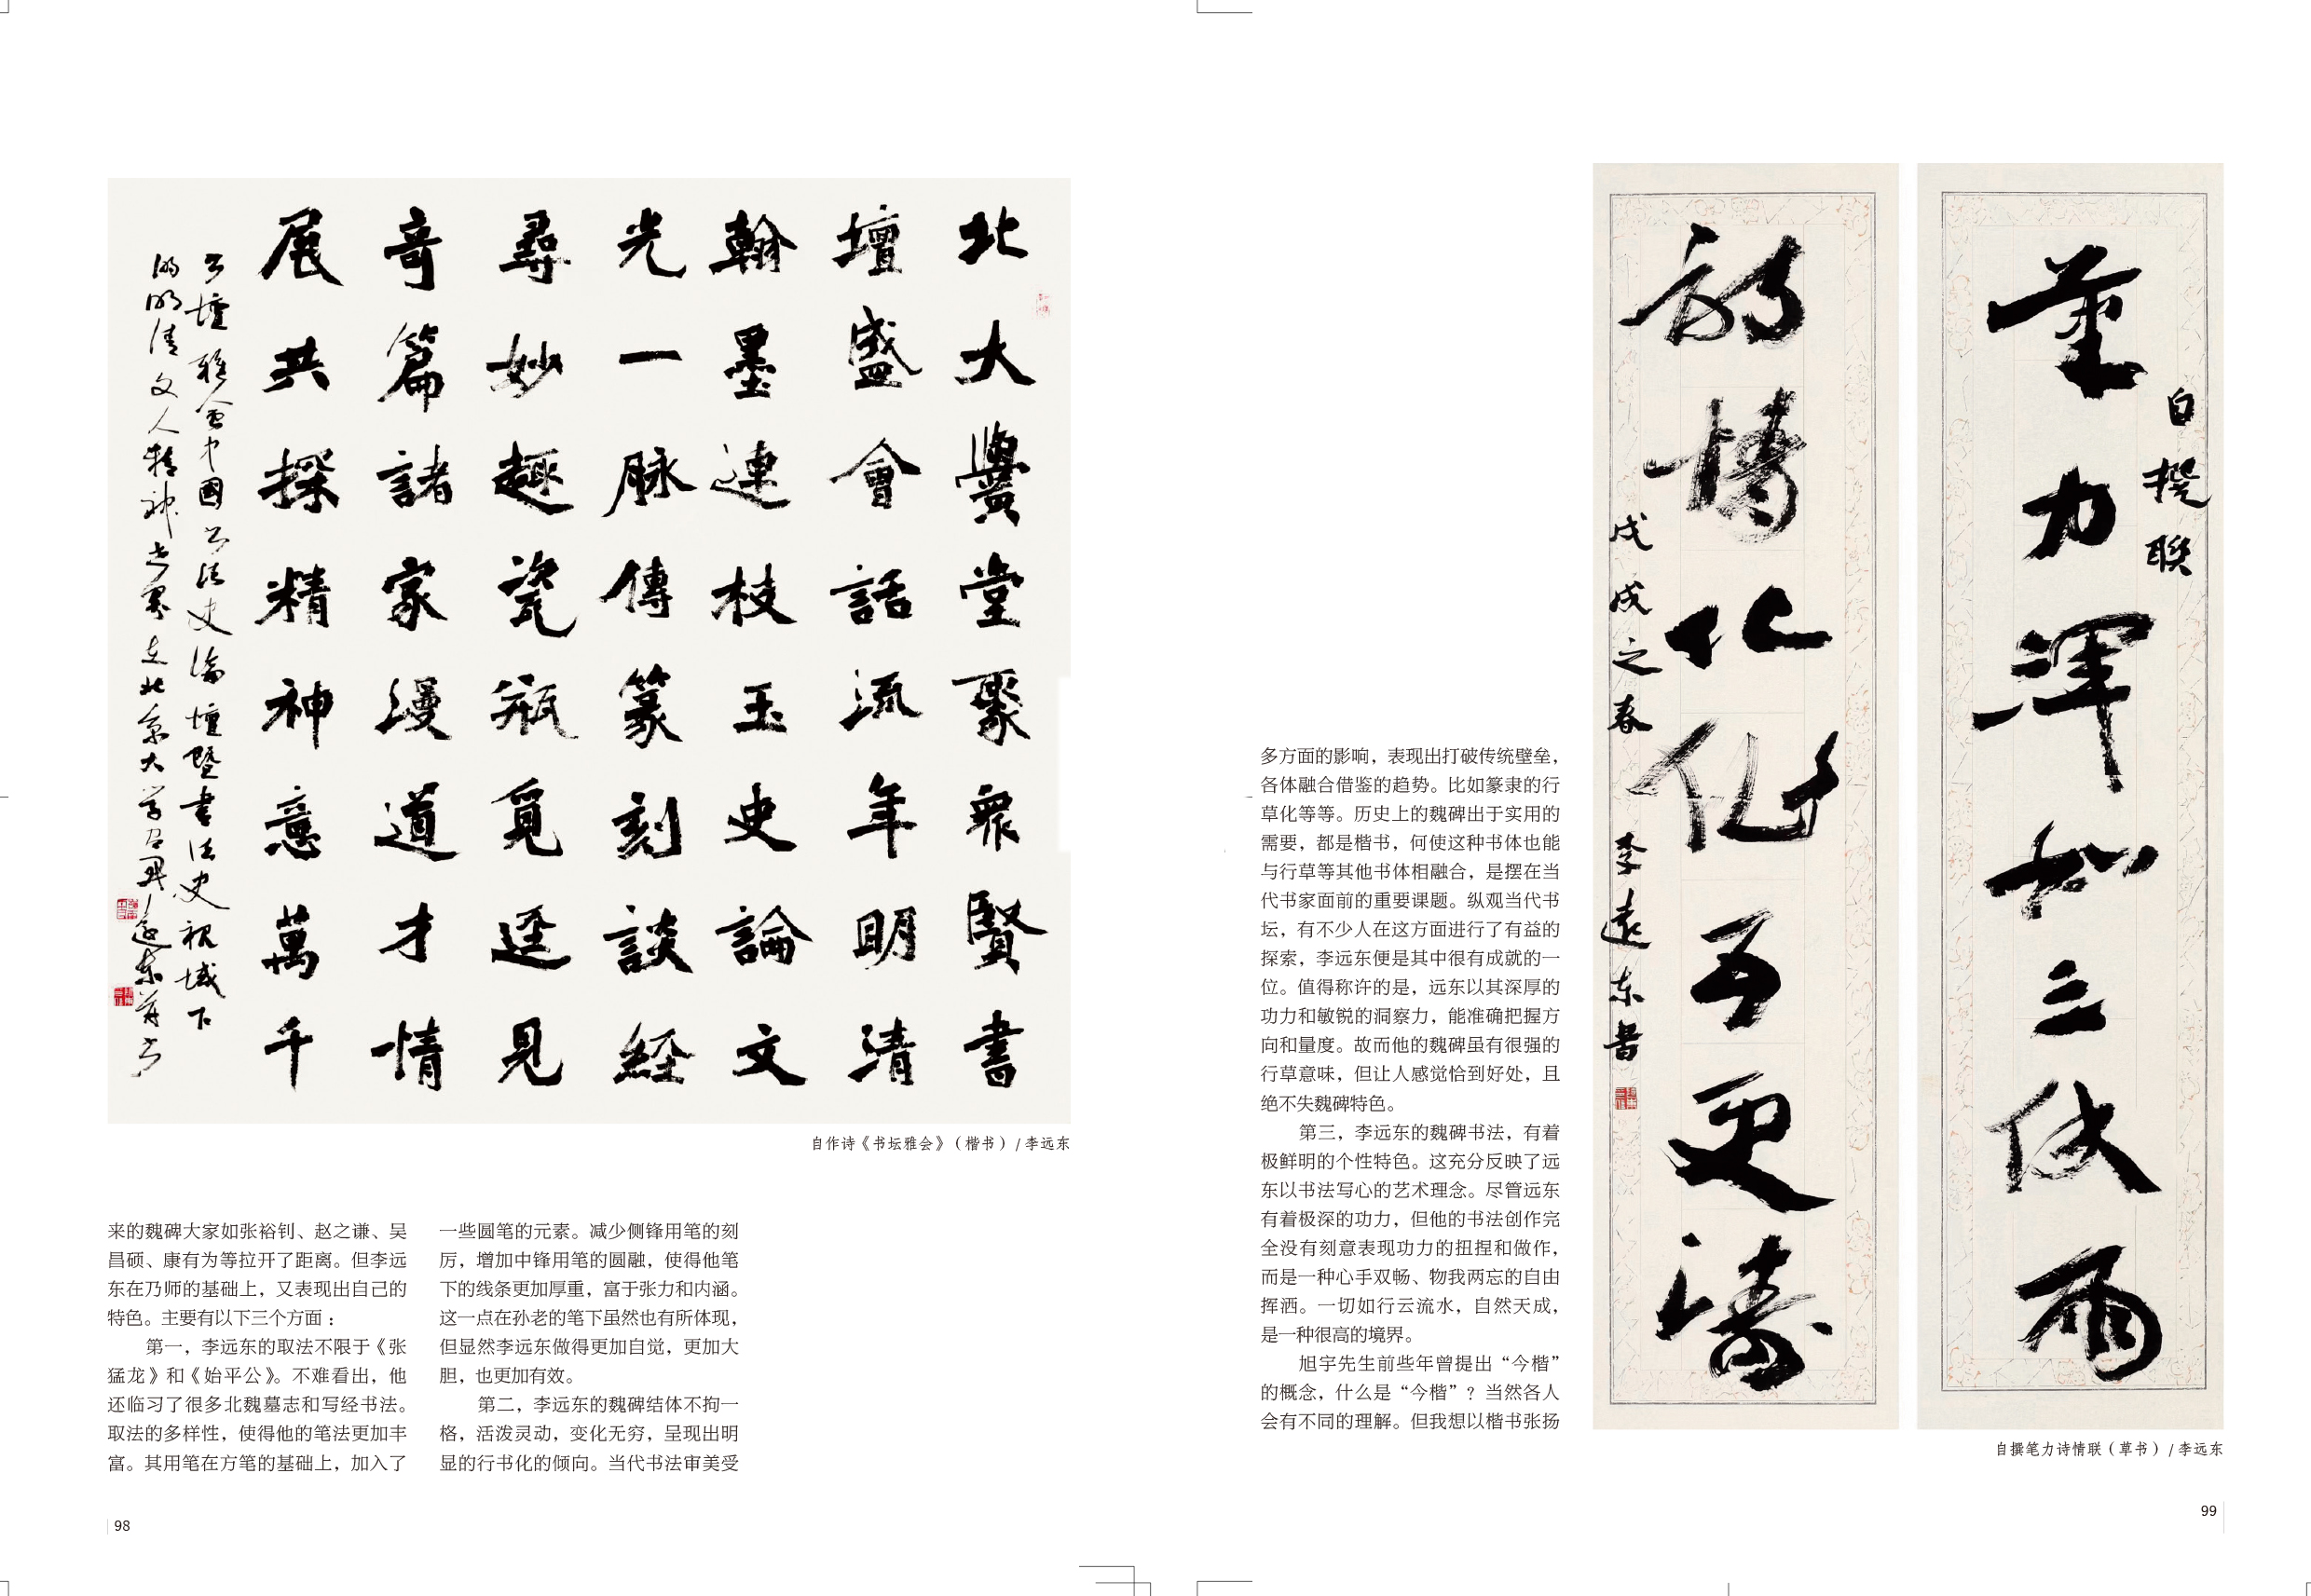 北大黌堂聚衆賢書
壇盛會話流年明清
翰墨連枝玉史論文
光一脉傳篆刻談經
尋妙趣瓷瓶覓逕見
奇篇諸家漫道才情
展共探精神意萬千
书壇雅會中國书法史論壇暨書法史視域下
的明清文人精神世界在北京大学召开远东并书
自作诗《书坛雅会》（楷书） / 李远东
来的魏碑大家如张裕钊、赵之谦、吴
昌硕、康有为等拉开了距离。但李远
东在乃师的基础上，又表现出自己的
特色。主要有以下三个方面：
第一，李远东的取法不限于《张
猛龙》和《始平公》。不难看出，他
还临习了很多北魏墓志和写经书法。
取法的多样性，使得他的笔法更加丰
富。其用笔在方笔的基础上，加入了
一些圆笔的元素。减少侧锋用笔的刻
厉，增加中锋用笔的圆融，使得他笔
下的线条更加厚重，富于张力和内涵。
这一点在孙老的笔下虽然也有所体现，
但显然李远东做得更加自觉，更加大
胆，也更加有效。
第二，李远东的魏碑结体不拘一
格，活泼灵动，变化无穷，呈现出明
显的行书化的倾向。当代书法审美受
98
多方面的影响，表现出打破传统壁垒，
各体融合借鉴的趋势。比如篆隶的行
草化等等。历史上的魏碑出于实用的
需要，都是楷书，何使这种书体也能
与行草等其他书体相融合，是摆在当
代书家面前的重要课题。纵观当代书
坛，有不少人在这方面进行了有益的
探索，李远东便是其中很有成就的一
位。值得称许的是，远东以其深厚的
功力和敏锐的洞察力，能准确把握方
向和量度。故而他的魏碑虽有很强的
行草意味，但让人感觉恰到好处，且
绝不失魏碑特色。
第三，李远东的魏碑书法，有着
极鲜明的个性特色。这充分反映了远
东以书法写心的艺术理念。尽管远东
有着极深的功力，但他的书法创作完
全没有刻意表现功力的扭捏和做作，
而是一种心手双畅、物我两忘的自由
挥洒。一切如行云流水，自然天成，
是一种很高的境界。
旭宇先生前些年曾提出“今楷”
的概念，什么是“今楷”？当然各人
会有不同的理解。但我想以楷书张扬
自撰联
筆力渾如三伏雨
詩情化作五更濤
戊戌之春 李遠东書
自撰笔力诗情联（草书） / 李远东
99